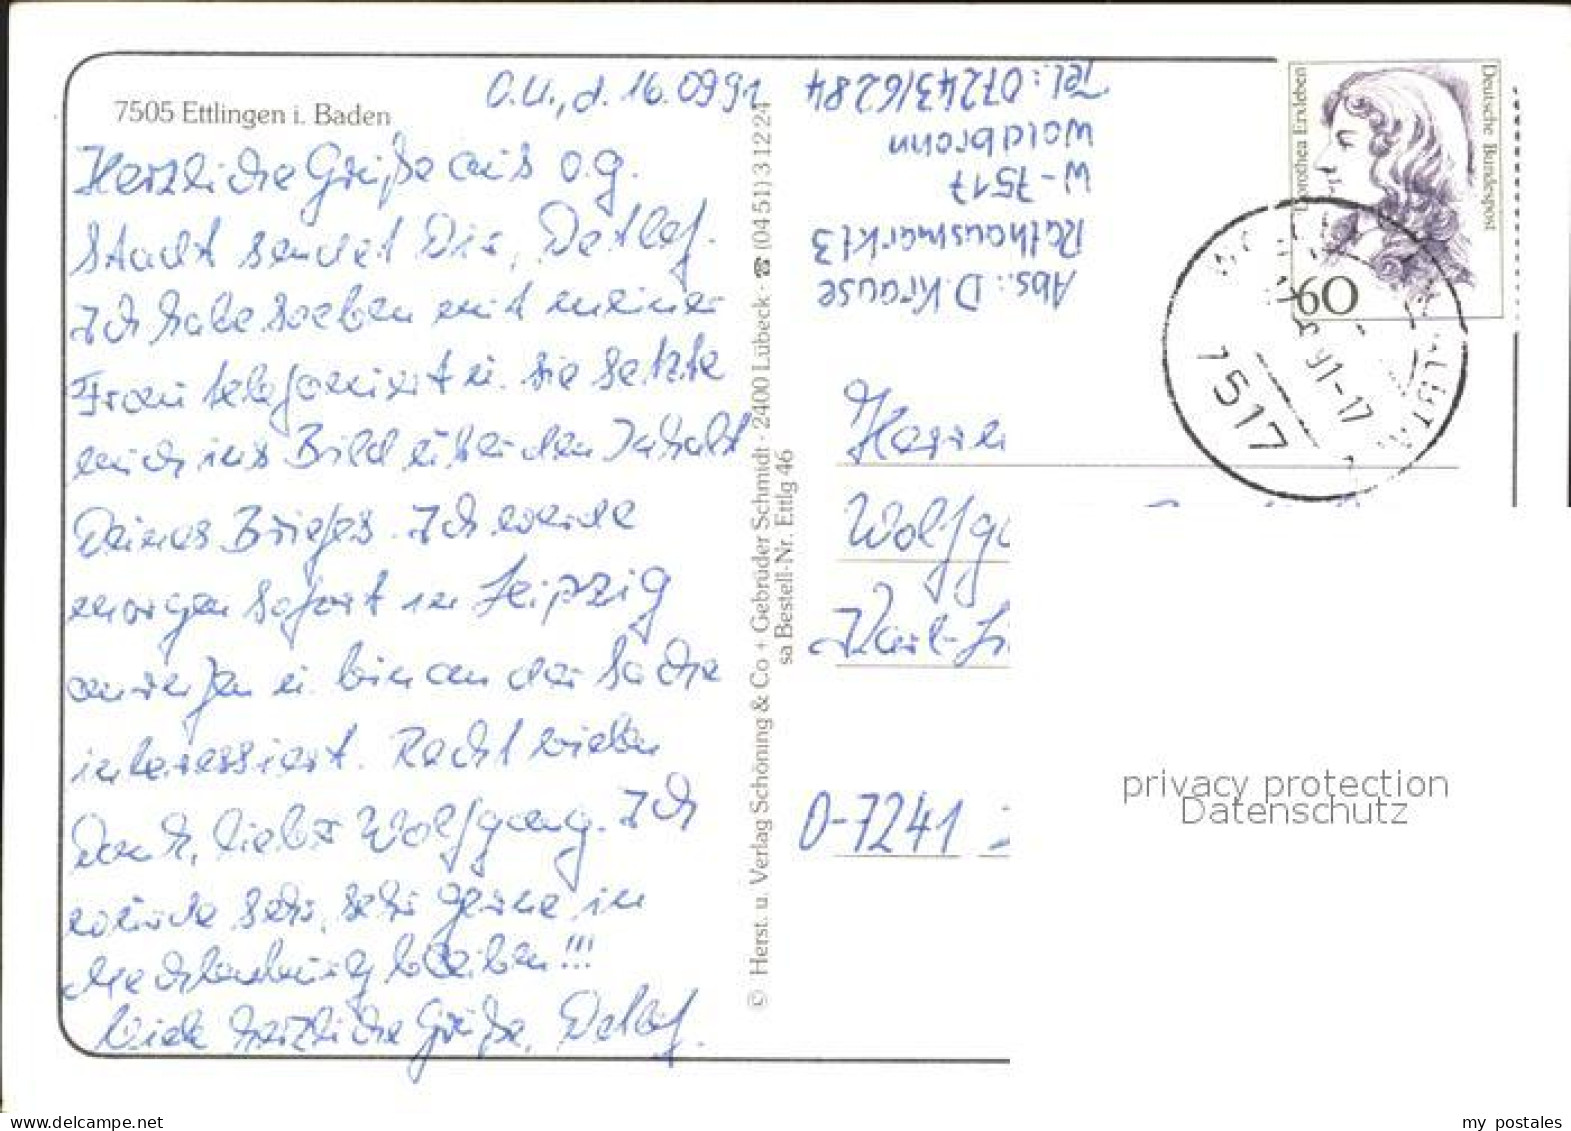 7505 Ettlingen i. Baden
O.U., d. 16.09.91
Herzliche Grüße aus o.g.
Stadt sendet Dir, Detlef.
Ich habe soeben mit meiner
Frau telefoniert u. sie setzte
mich ins Bild über den Inhalt
Deines Briefes. Ich werde
morgen sofort in Leipzig
anrufen u. bin an der Sache
interessiert. Recht vielen
Dank, lieber Wolfgang. Ich
würde sehr, sehr gerne in
Mecklenburg bleiben!!!
Viele herzliche Grüße, Detlef.
© Herst. u. Verlag Schöning & Co + Gebrüder Schmidt · 2400 Lübeck · ☎ (04 51) 3 12 24
sa Bestell-Nr. Ettlg 46
Abs.: D. Krause
Rathausmarkt 3
W-7517
Waldbronn
Tel.: 07243/6284
Deutsche Bundespost
Dorothea Erxleben
60
7517
91-17
Herrn
Wolfga
Karl-Li
O-7241
privacy protection
Datenschutz
my_postales